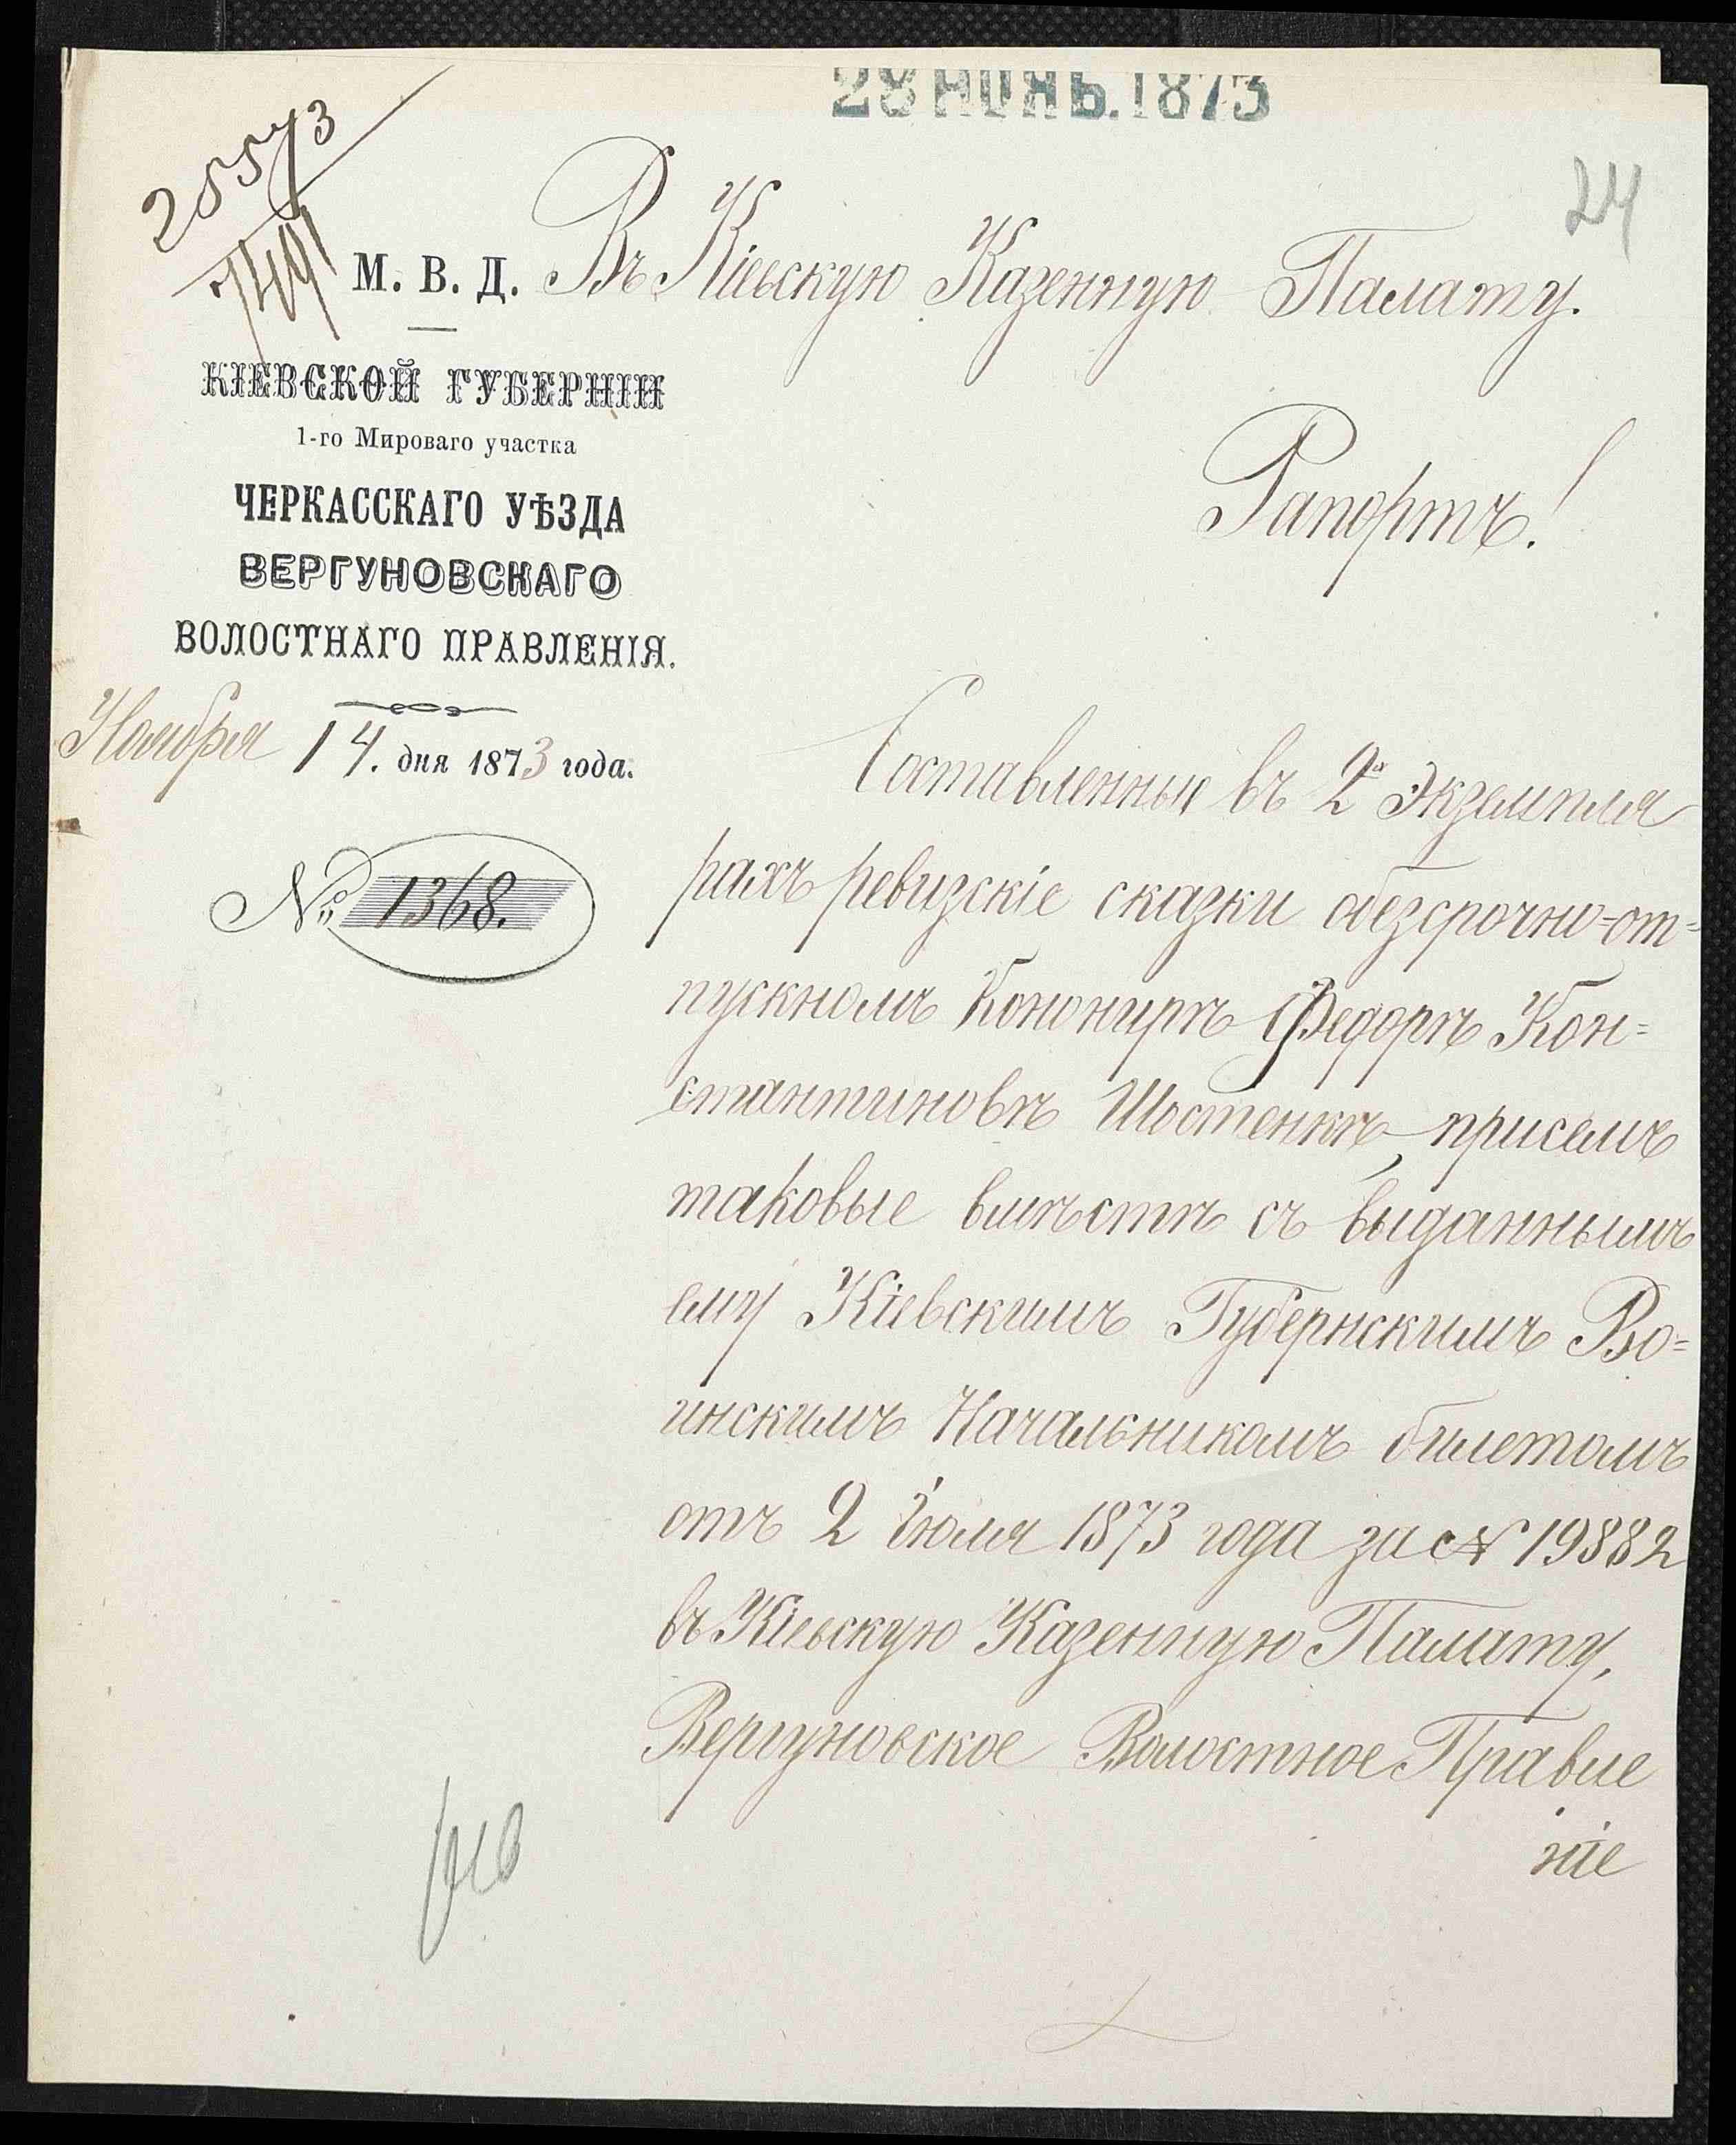 28 НОЯБ. 1873
25573
1491
24
М. В. Д.
КІЕВСКОЙ ГУБЕРНІИ
1-го Мироваго участка
ЧЕРКАССКАГО УѢЗДА
ВЕРГУНОВСКАГО
ВОЛОСТНАГО ПРАВЛЕНІЯ.
Ноября 14. дня 1873 года.
№ 1368.
Въ Кіевскую Казенную Палату.
Рапортъ!
Составленные въ 2х экземпля
рахъ ревизскіе сказки обезсрочно=от=
пускномъ Кононирѣ Федорѣ Кон=
стантиновѣ Шостенкѣ, присемъ
таковые вмѣстѣ съ выданнымъ
ему Кіевскимъ Губернскимъ Во=
инскимъ Начальникомъ билетомъ
отъ 2 іюля 1873 года за № 19882
въ Кіевскую Казенную Палату,
Вергуновское Волостное Правле
ніе